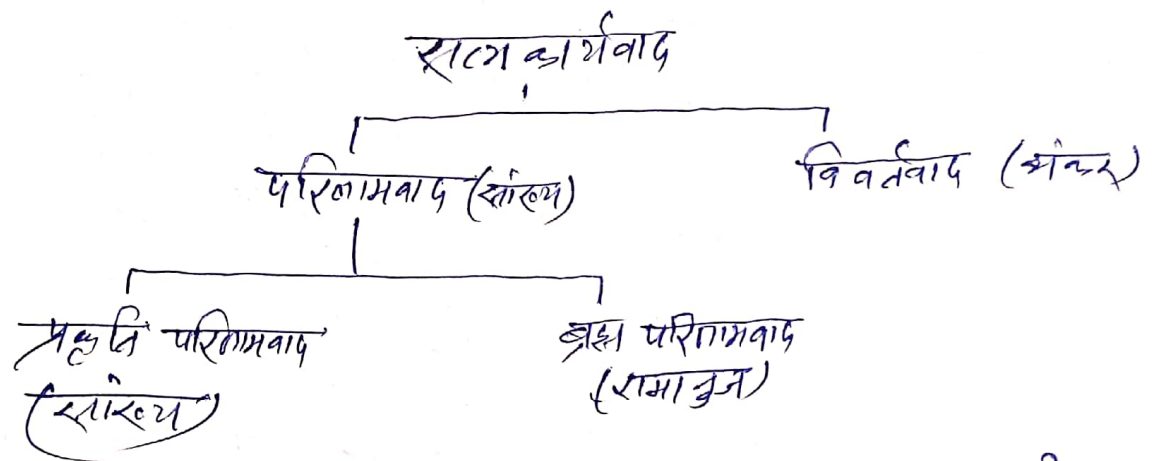 सत्य कार्यवाद
परिणामवाद (सांख्य)
विवर्तवाद (शंकर)
प्रकृति परिणामवाद
(सांख्य)
ब्रह्म परिणामवाद
(रामानुज)